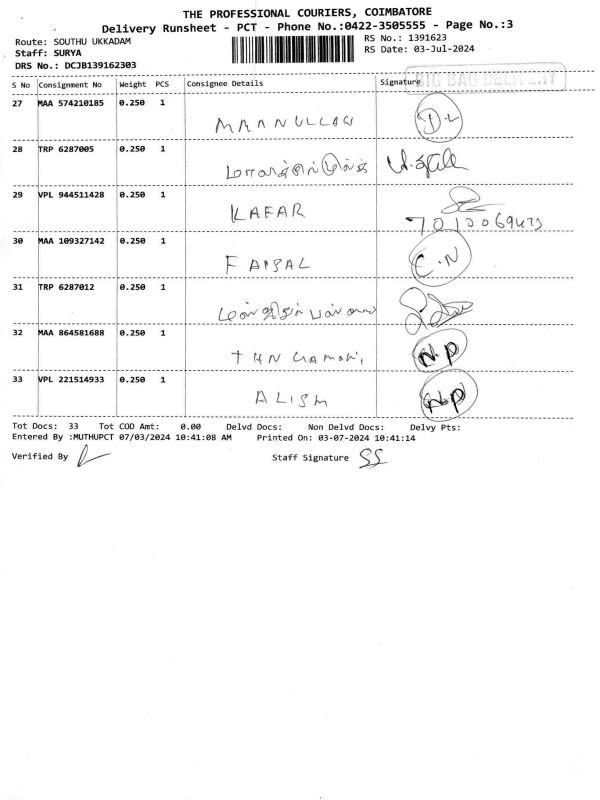 THE PROFESSIONAL COURIERS, COIMBATORE
Delivery Runsheet - PCT - Phone No.:0422-3505555 - Page No.:3
Route: SOUTHU UKKADAM RS No.: 1391623
Staff: SURYA RS Date: 03-Jul-2024
DRS No.: DCJB139162303
BIG BAG DELIVERY
S No Consignment No Weight PCS Consignee Details Signature
27 MAA 574210185 0.250 1
D.L
28 TRP 6287005 0.250 1
29 VPL 944511428 0.250 1
KAFAR
30 MAA 109327142 0.250 1
FAISAL C.N
31 TRP 6287012 0.250 1
32 MAA 864581688 0.250 1
N.P
33 VPL 221514933 0.250 1
ALISM N.P
Tot Docs: 33 Tot COD Amt: 0.00 Delvd Docs: Non Delvd Docs: Delvy Pts:
Entered By :MUTHUPCT 07/03/2024 10:41:08 AM Printed On: 03-07-2024 10:41:14
Verified By Staff Signature SS